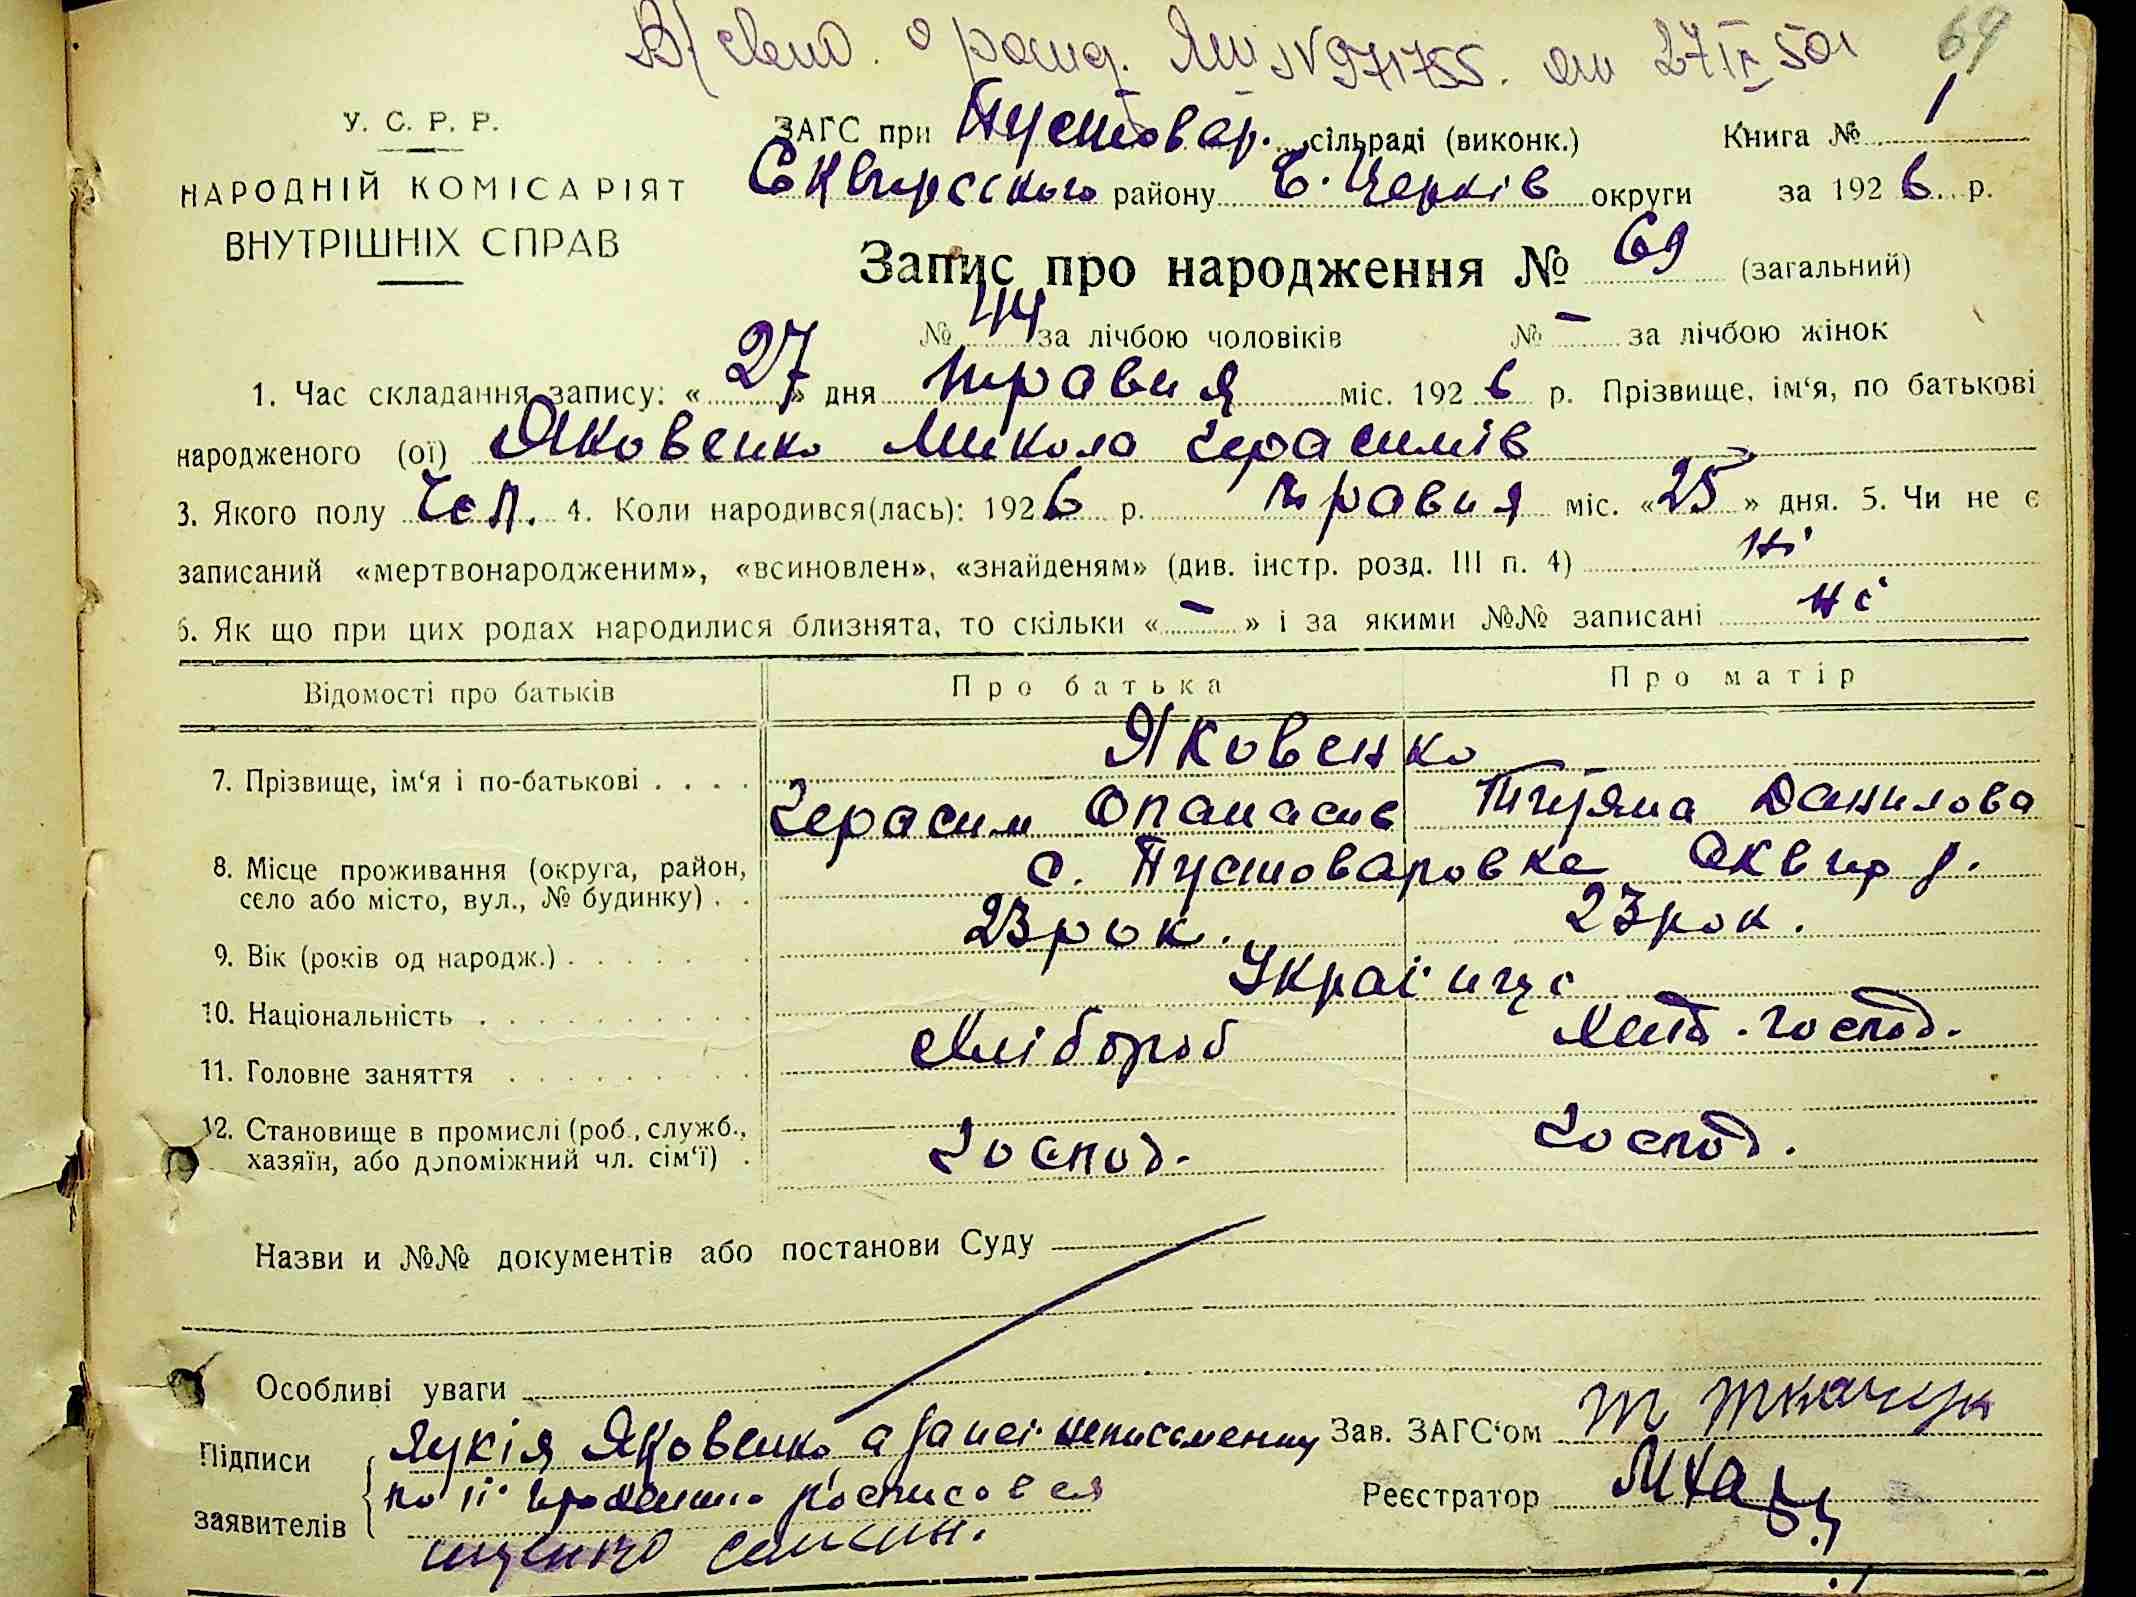 В/ свид. о рожд. № 971755. от 27 IX 50 г 69
У. С. Р. Р.
НАРОДНІЙ КОМІСАРІЯТ
ВНУТРІШНІХ СПРАВ
ЗАГС при Пустовар. сільраді (виконк.) Книга № 1
Сквирсского району Б. Церків округи за 1926 р.
Запис про народження № 69 (загальний)
№ 44 за лічбою чоловіків № – за лічбою жінок
1. Час складання запису: « 27 » дня травня міс. 1926 р. Прізвище, ім‘я, по батькові
народженого (ої) Яковенко Микола Герасимів
3. Якого полу Чол. 4. Коли народився(лась): 1926 р. травня міс. « 25 » дня. 5. Чи не є
записаний «мертвонародженим», «всиновлен», «знайденям» (див. інстр. розд. III п. 4) ні
6. Як що при цих родах народилися близнята, то скільки « – » і за якими №№ записані ні
Відомості про батьків Про батька Про матір
7. Прізвище, ім‘я і по-батькові Яковенко
Герасим Опанасів Тетяна Данилова
8. Місце проживання (округа, район,
село або місто, вул., № будинку) с. Пустоваровка Сквир р.
9. Вік (років од народж.) 23 рок. 23 рок.
10. Національність Українці
11. Головне заняття Хлібороб Хат. господ.
12. Становище в промислі (роб., служб.,
хазяїн, або допоміжний чл. сім‘ї) Господ. Господ.
Назви и №№ документів або постанови Суду
Особливі уваги
Підписи заявителів Лукія Яковенко а за неі неписьменну
по іі проханню росписовся
Зав. ЗАГС‘ом Т Ткачук
Реєстратор